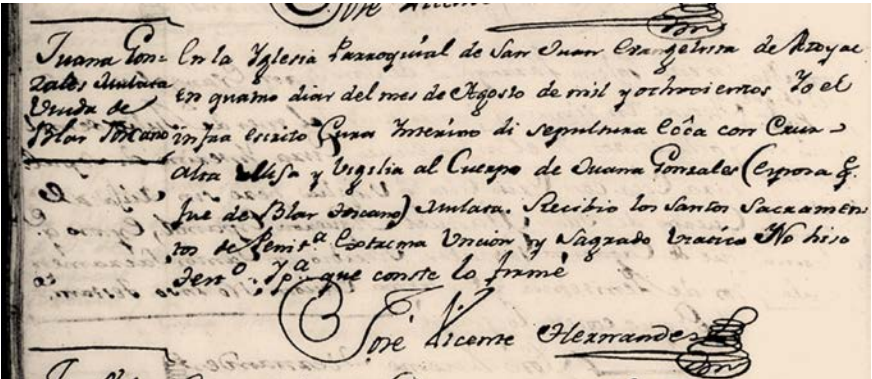 Juana Gon=
zales Mulata
Viuda de
Blas Toscano
En la Yglesia Parroquial de San Juan Evangelista de Atoyac
en quatro dias del mes de Agosto de mil y ochocientos Yo el
infra escrito Cura Interino di sepultura Ecca con Cruz
alta Misa y Vigilia al Cuerpo de Juana Gonzales (esposa q.
fue de Blas Toscano) Mulata. Recibio los Santos Sacramen
tos de Penita Extrema Uncion y Sagrado Viatico No hiso
Testo. Ypa. que conste lo firmé
José Vicente Hernandez